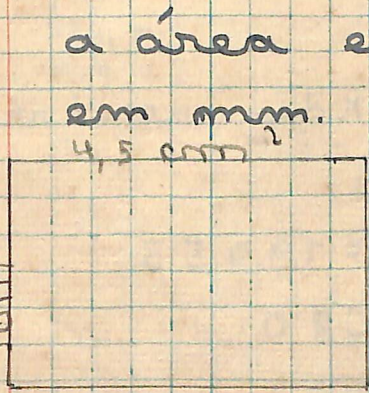 a área e
em mm.
4,5 cm²